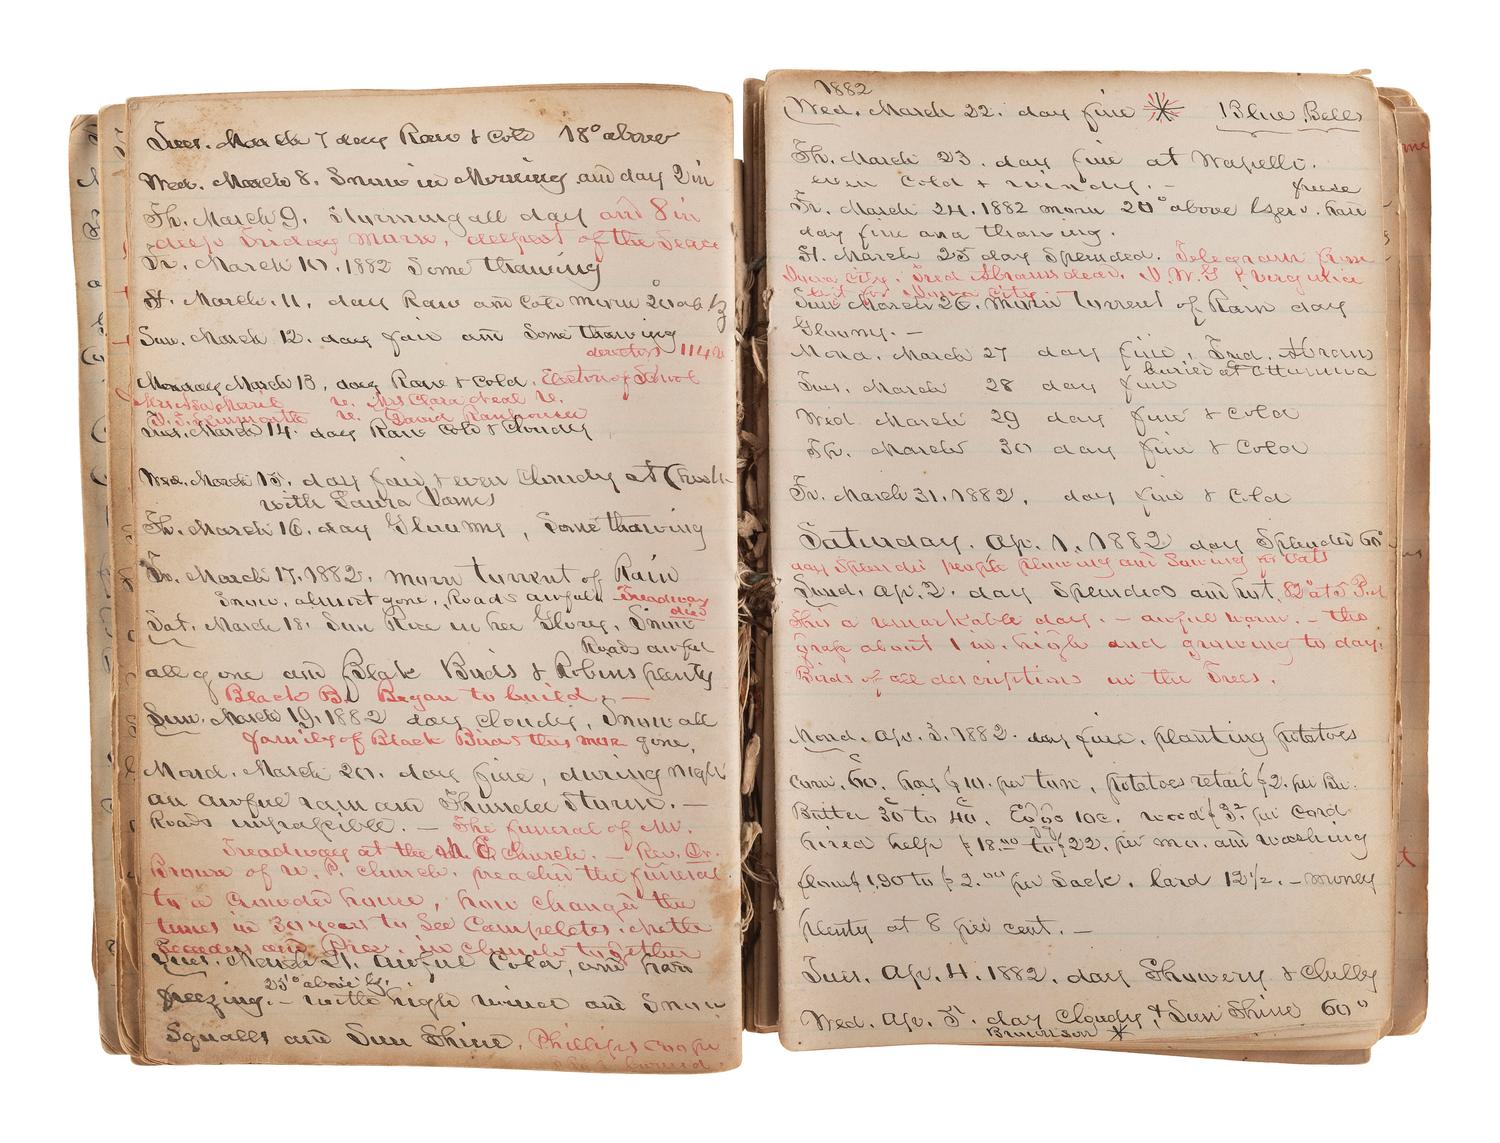 Tues. March 7 day Raw & Cold 18° above
Wed. March 8. Snow in Morning and day 2 in
Th. March 9. Storming all day and 8 in
deep Friday Morn, deepest of the Season
Fr. March 10. 1882 Some thawing
St. March. 11. day Raw and Cold morn 20 ab
Sun. March 12. day fair and Some thawing
Monday March 13. day Raw & Cold. Election of School
directors
Mrs Clara Neal
David
Tues. March 14. day Raw Cold & Cloudy
Wed. March 15. day fair & even Cloudy at
with Laura
Th. March 16. day Gloomy, Some thawing
Fr. March 17. 1882. morn torrent of Rain
Snow, almost gone, Roads awful Treadway
died
Sat. March 18. Sun Rise in her Glory. Snow
Roads awful
all gone and Black Birds & Robins plenty
Black B. Began to build. —
Sun. March 19. 1882 day cloudy, Snow all
family of Black Birds this mor gone,
Mond. March 20. day fine, during night
an awful rain and Thunder Storm. —
Roads impassible. — The funeral of Mr.
Treadway at the M E church. — Rev. Dr.
Brown of U. P. church. preached the funeral
to a Crowded house, how changed the
times in 30 years to See
Seceders and Pres. in church together
Tues. March 21. awful Cold, and hard
25° above
freezing. — with high winds and Snow
Squalls and Sun Shine. Phillips
1882
Wed. March 22. day fine Blue Bells
Th. March 23. day fine at Wapello.
even Cold & windy. —
freese
Fr. March 24. 1882 morn 20° above hard
day fine and thawing.
St. March 25 day Spended. Telegram from
Iowa City. Fred Abrams dead.
Iowa City
Sun March 26. morn torrent of Rain day
Gloomy. —
Mond. March 27 day fine, Fred. Abrams
buried at Ottumwa
Tues. March 28 day fine
Wed March 29 day fine & Cold
Th. March 30 day fine & Cold
Fr. March 31. 1882, day fine & Cold
Saturday. Ap. 1. 1882 day Splendid 60°
day Splendid people plowing and Sowing
Sund. Ap. 2. day Splendid and hot. 82° at
this a remarkable day. — awful warm. — the
gras about 1 in. high and growing to day.
Birds of all descriptions in the Trees.
Mond. Ap. 3. 1882. day fine. planting potatoes
corn. 60. hay $10. per ton, potatoes retail $2. per Bu.
Butter 35 to 40. Eggs 10c. wood $ per cord
hired help $18.00 to $22. per mo. and washing
flour $1.90 to $2.00 per Sack. lard 12½. — money
plenty at 8 per cent. —
Tues. Ap. 4. 1882. day Showery & chilly
Wed. Ap. 5. day Cloudy, & Sun Shine 60°